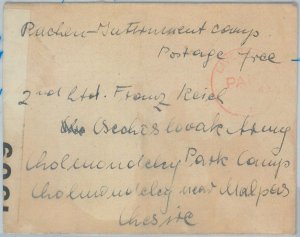 Ruchen-Internment camp.
Postage free
2nd Ltd. Franz Reich
Czechoslovak Army
Cholmondeley Park Camp
Cholmondeley near Malpas
Chesire